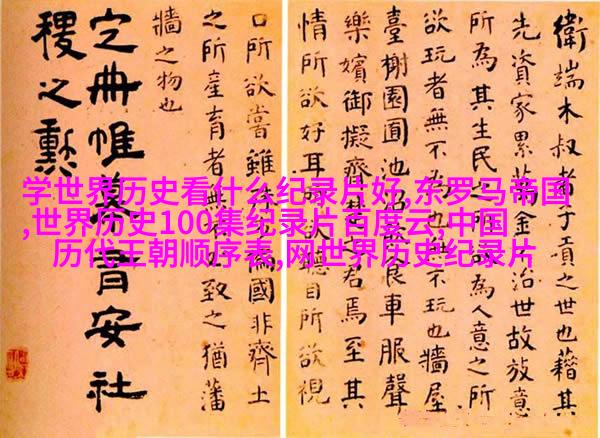 学世界历史看什么纪录片好,东罗马帝国
,世界历史100集纪录片百度云,中国
历代王朝顺序表,网世界历史纪录片
衛端木叔者子貢之世也藉其
先資家累萬金不治世故放意
所為其生民之所欲為人意之所
欲玩者無不為也無不玩也牆屋
臺榭園囿池沼飲食車服聲
樂嬪御擬齊楚之君焉至其
情所欲好耳所欲聽目所欲視
口所欲嘗雖殊方偏國非齊土
之所產育者無不必致之猶藩
牆之物也
定冊帷幕有安社
稷之勲